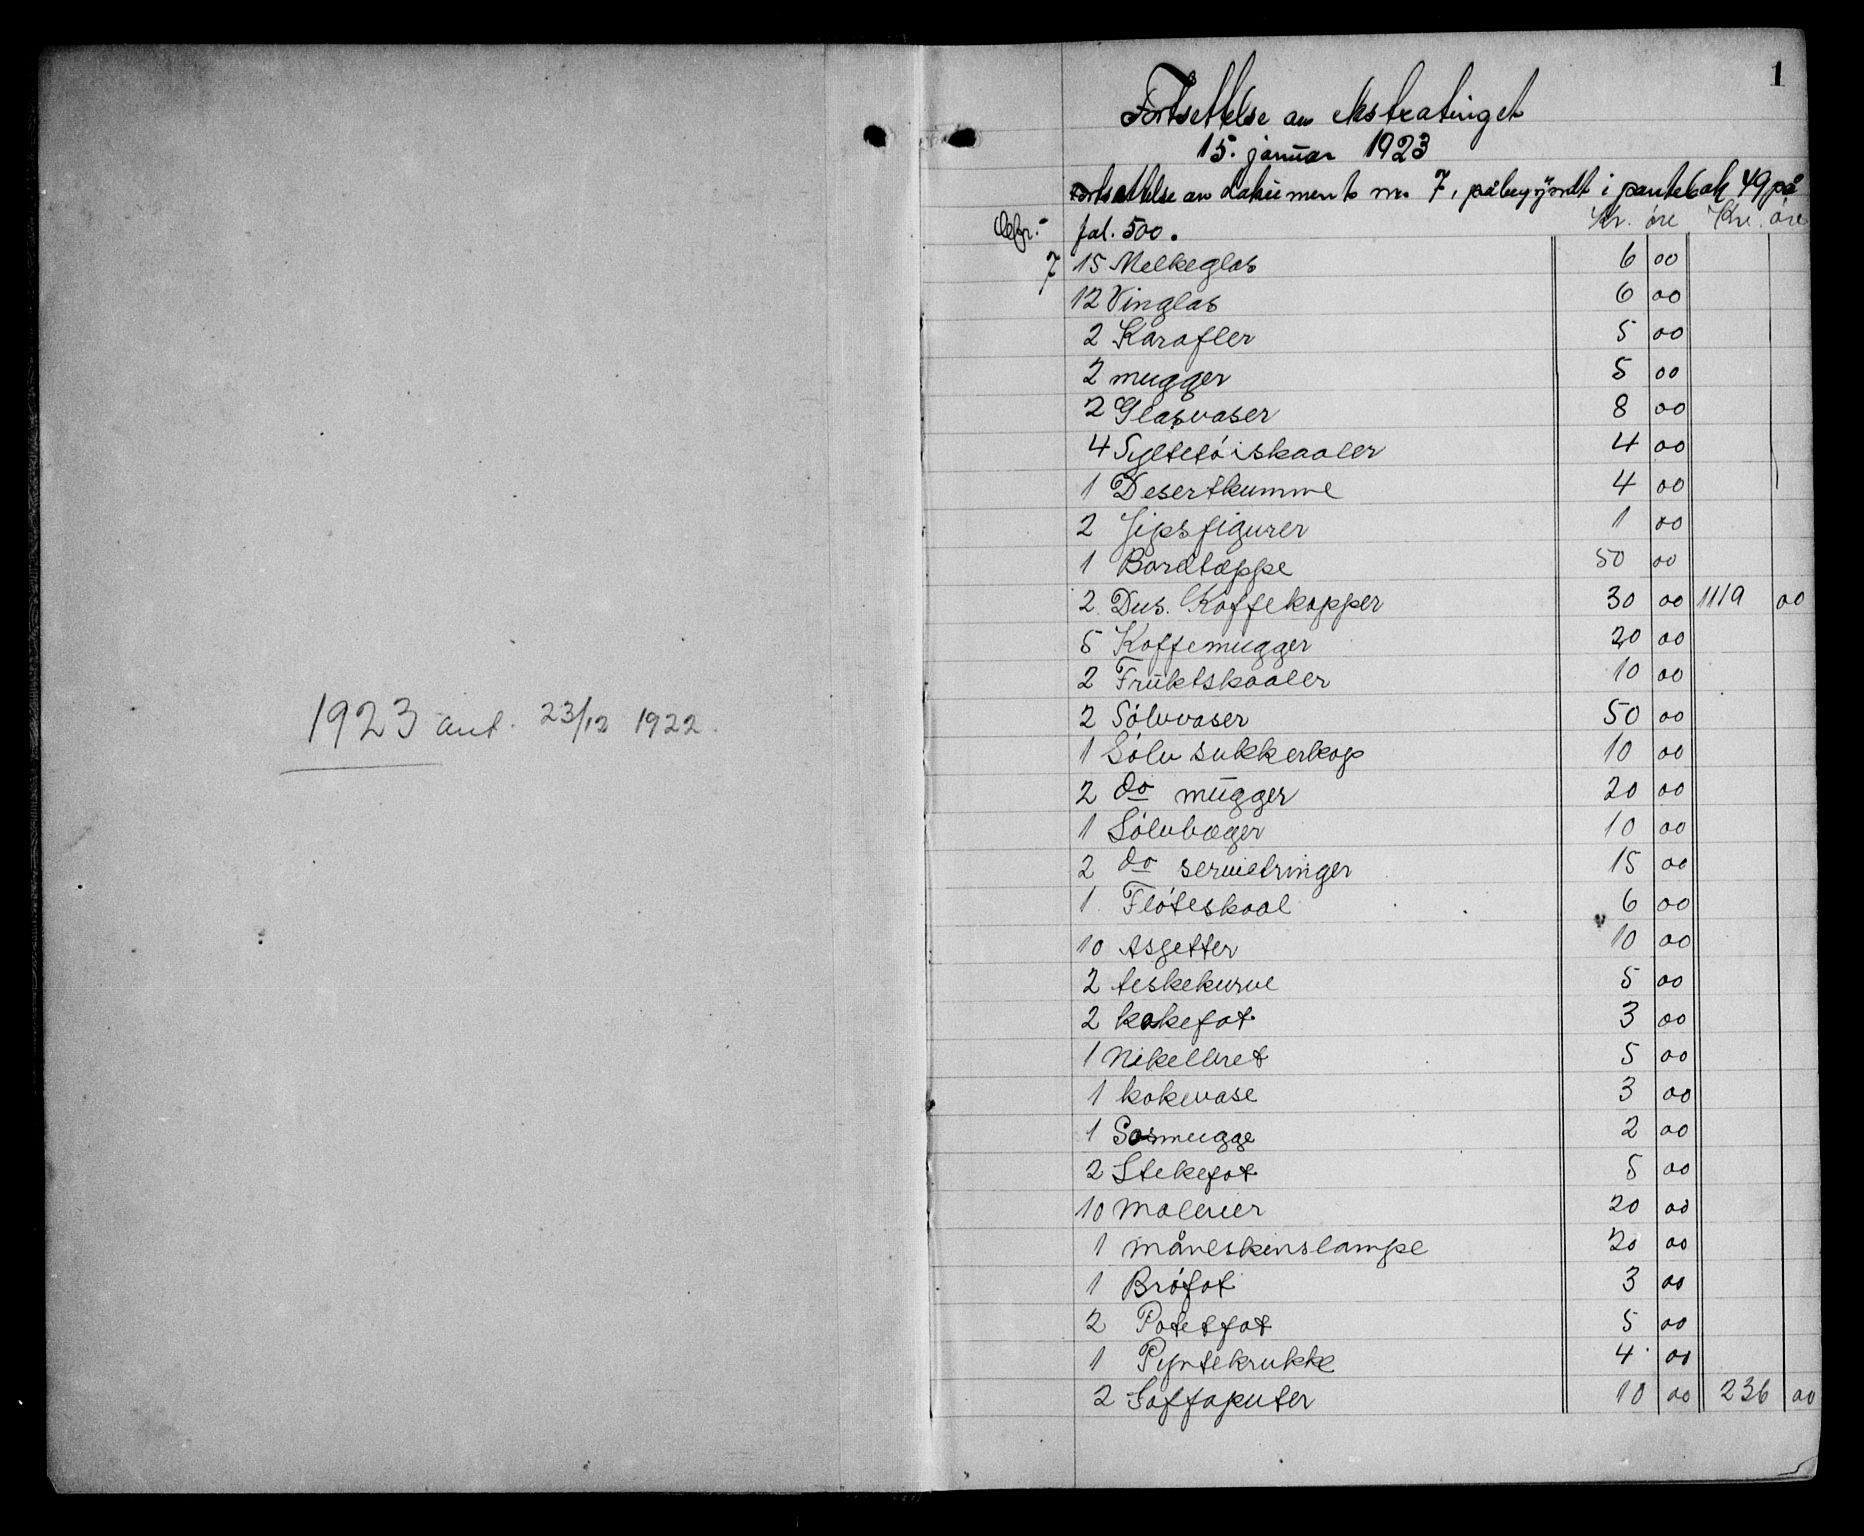 1923 ant. 23/12 1922.
1
Fortsettelse av ekstratinget
15. januar 1923
Fortsettelse av dokument nr. 7, påbegynt i pantebok 49 på
fol. 500. Kr. øre Kr. øre
7 15 Melkeglas 6 00
12 Vinglas 6 00
2 Karafler 5 00
2 mugger 5 00
2 Glasvaser 8 00
4 Syltetøiskaaler 4 00
1 Desertkumme 4 00
2 Jipsfigurer 1 00
1 Bordtæppe 50 00
2 Dus. Kaffekopper 30 00 1119 00
5 Kaffemugger 20 00
2 Fruktskaaler 10 00
2 Sølvvaser 50 00
1 Sølv sukkerkop 10 00
2 do mugger 20 00
1 Sølvbæger 10 00
2 do servietringer 15 00
1 Fløteskaal 6 00
10 Asjetter 10 00
2 teskekurve 5 00
2 kakefat 3 00
1 Nikelbret 5 00
1 kakevase 3 00
1 Sosmugge 2 00
2 Stekefat 5 00
10 Malerier 20 00
1 måneskinslampe 20 00
1 Brøfat 3 00
2 Potetfat 5 00
1 Pyntekrukke 4 00
2 Soffaputer 10 00 236 00